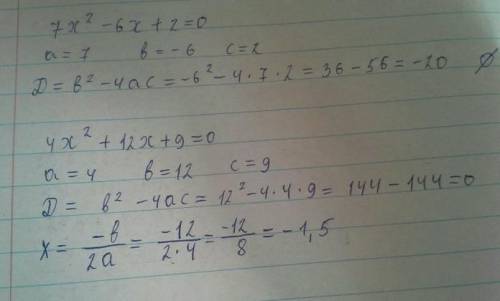 7x² - 6x + 2 = 0
a = 7 в = -6 c = 2
D = в² - 4ac = -6² - 4 · 7 · 2 = 36 - 56 = -20 ∅
4x² + 12x + 9 = 0
a = 4 в = 12 c = 9
D = в² - 4ac = 12² - 4 · 4 · 9 = 144 - 144 = 0
x = -в/2a = -12/2·4 = -12/8 = -1,5